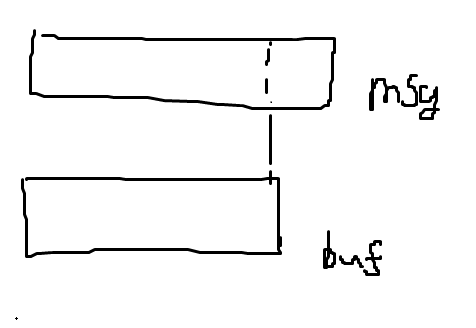 msg
buf